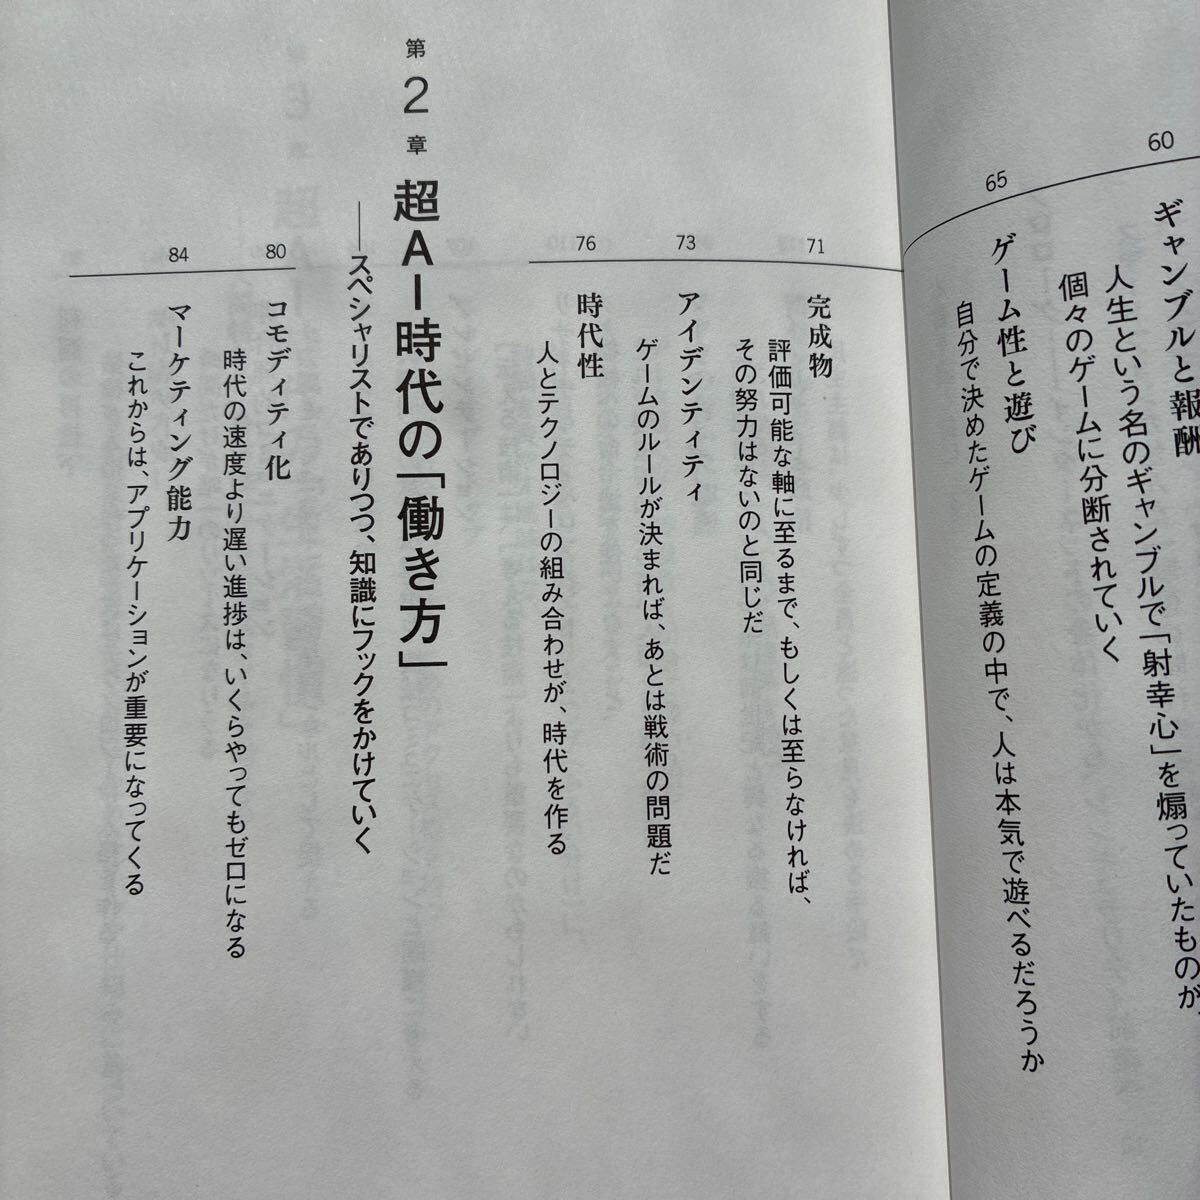 60
ギャンブルと報酬
人生という名のギャンブルで「射幸心」を煽っていたものが、
個々のゲームに分断されていく
65
ゲーム性と遊び
自分で決めたゲームの定義の中で、人は本気で遊べるだろうか
71
完成物
評価可能な軸に至るまで、もしくは至らなければ、
その努力はないのと同じだ
73
アイデンティティ
ゲームのルールが決まれば、あとは戦術の問題だ
76
時代性
人とテクノロジーの組み合わせが、時代を作る
第2章 超AI時代の「働き方」
――スペシャリストでありつつ、知識にフックをかけていく
80
コモディティ化
時代の速度より遅い進捗は、いくらやってもゼロになる
84
マーケティング能力
これからは、アプリケーションが重要になってくる